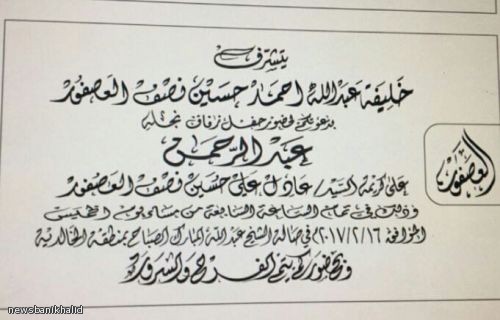 يتشرف
خليفة عبدالله احمد حسين نصف العصفور
بدعوتكم لحضور حفل زفاف نجله
عبد الرحمن
على كريمة السيد / عادل علي حسين نصف العصفور
وذلك في تمام الساعة السابعة من مساء يوم الخميس
الموافق ٢٠١٧/٢/١٦ في صالة الشيخ عبدالله المبارك الصباح بمنطقة الخالدية
وبحضوركم يتم الفرح والسرور
العصفور
newsbanikhalid